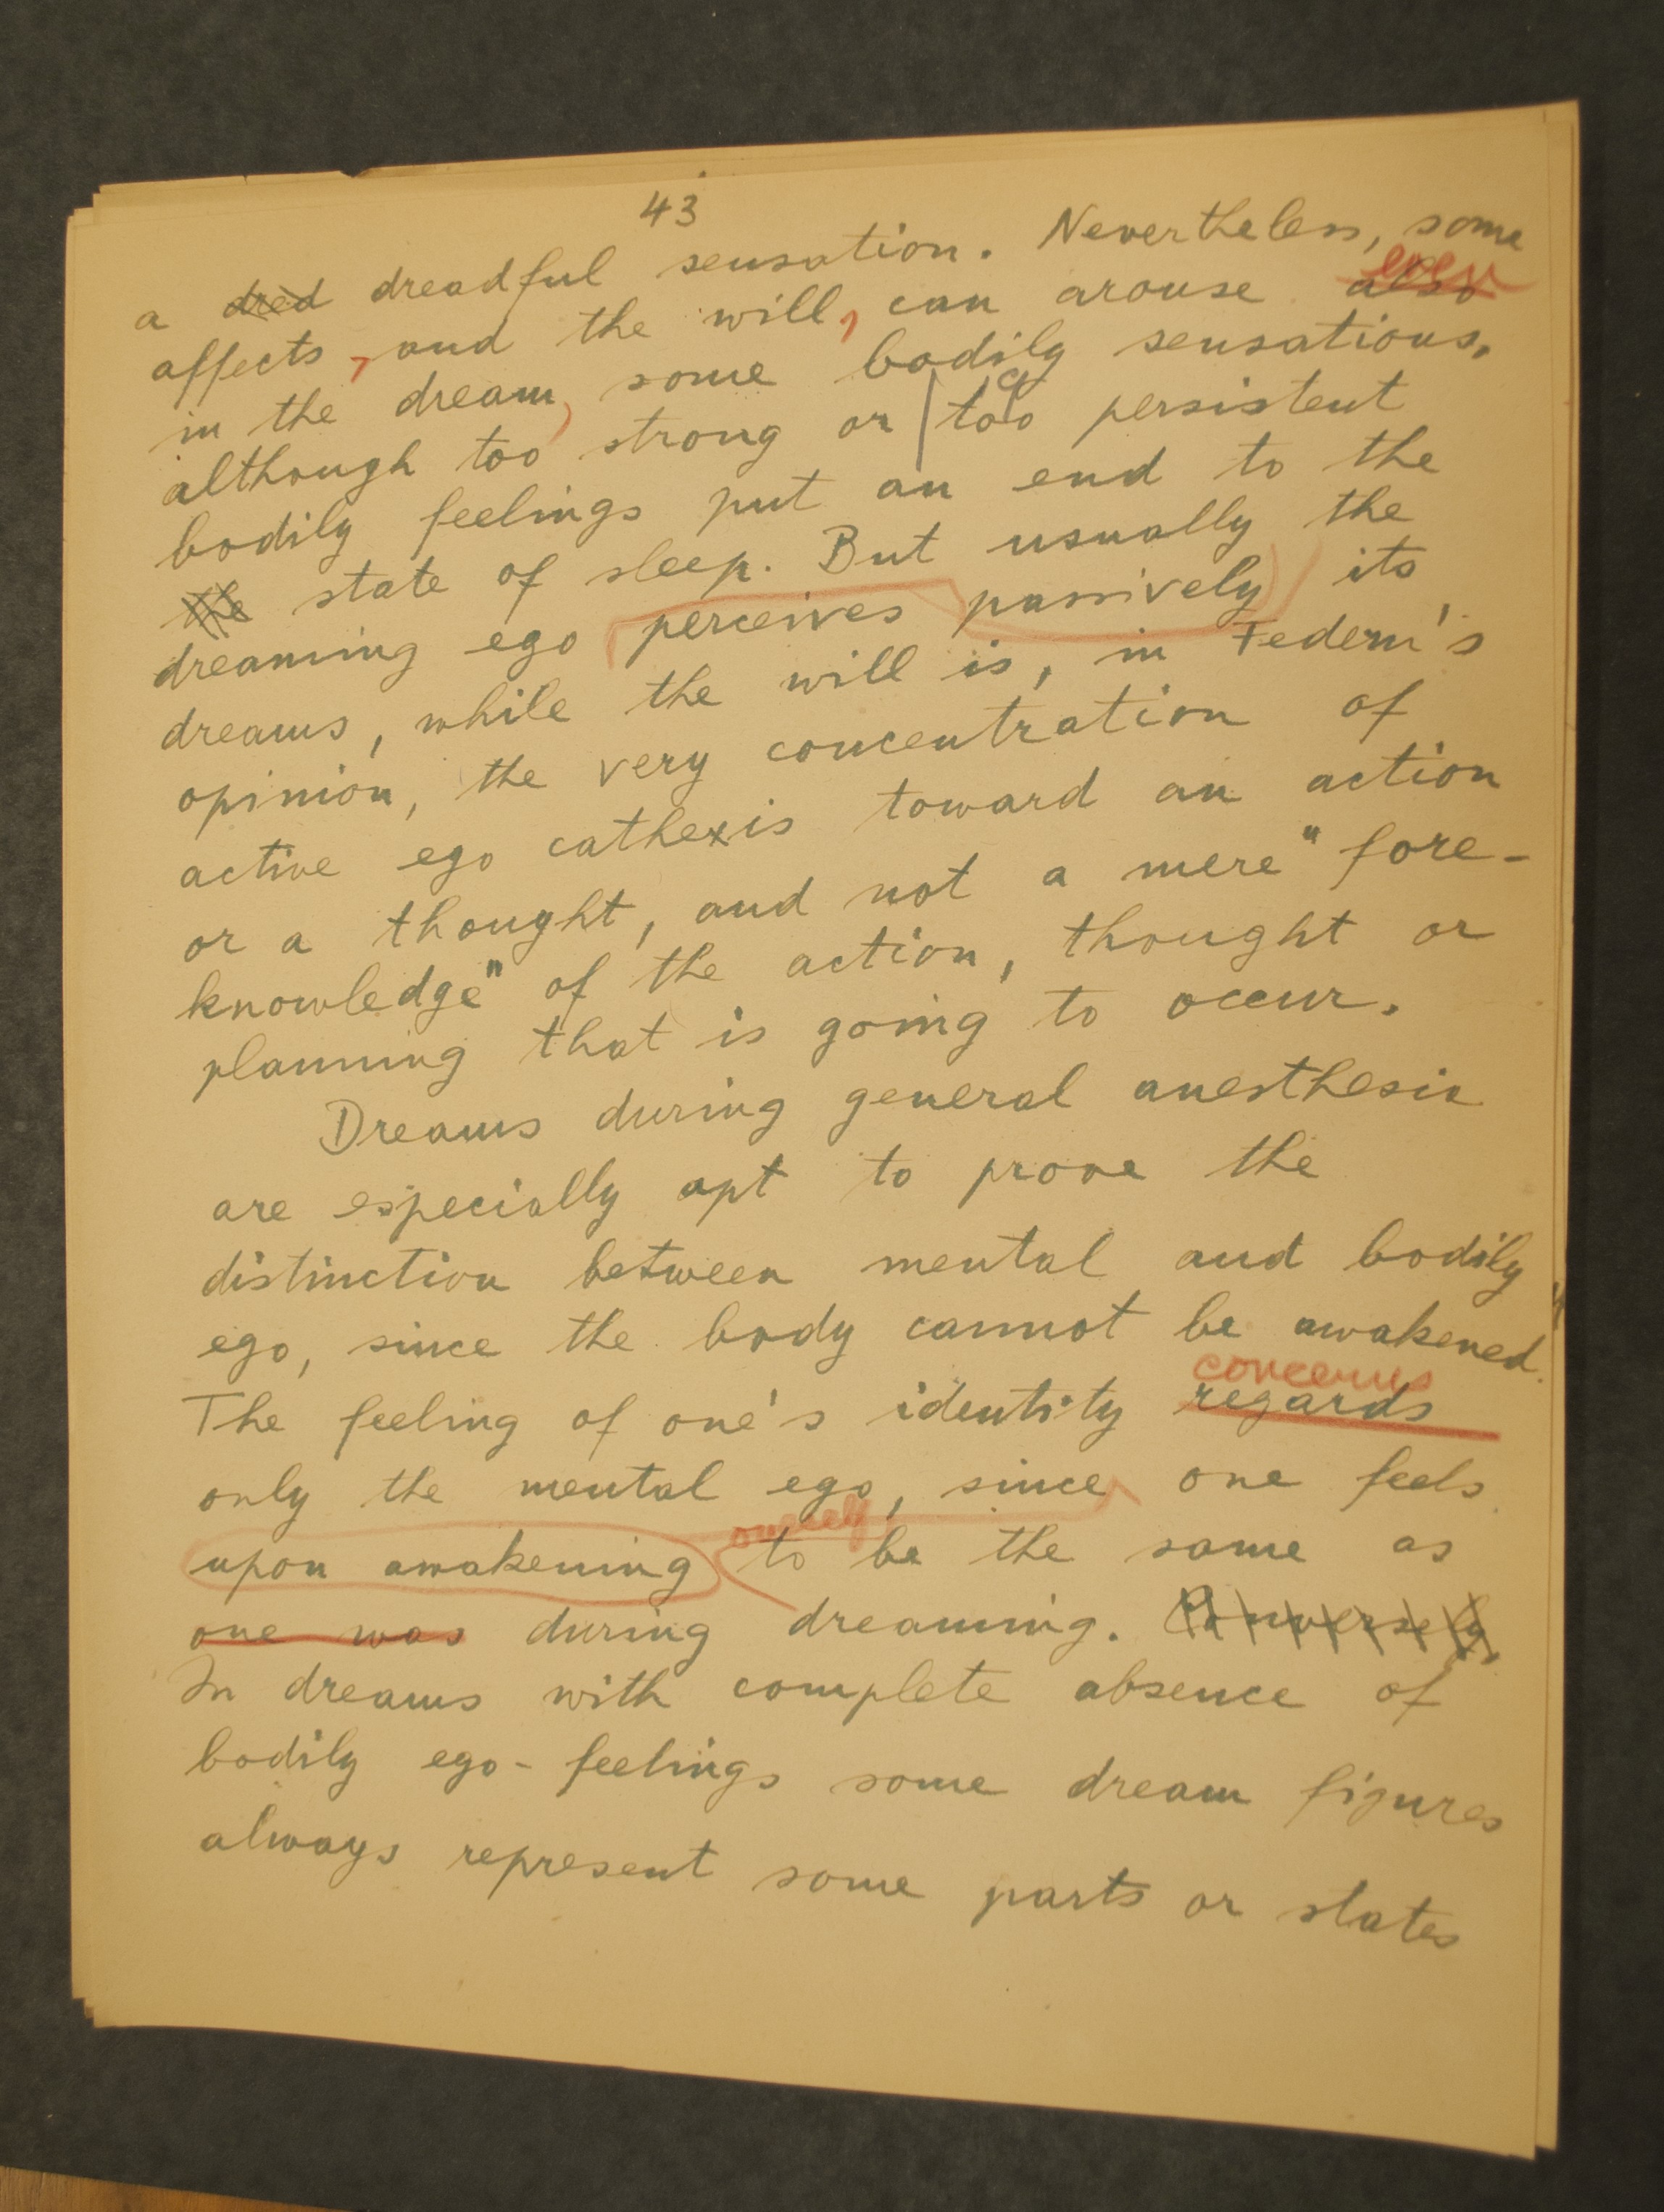 43
a dred dreadful sensation. Nevertheless, some
even
affects, and the will, can arouse also
in the dream, some bodily sensations,
although too strong or too persistent
bodily feelings put an end to the
the state of sleep. But usually the
dreaming ego perceives passively its
dreams, while the will is, in Federn's
opinion, the very concentration of
active ego cathexis toward an action
or a thought, and not a mere "fore-
knowledge" of the action, thought or
planning that is going to occur.
Dreams during general anesthesia
are especially apt to prove the
distinction between mental and bodily
ego, since the body cannot be awakened.
concerns
The feeling of one's identity regards
only the mental ego, since one feels
oneself
upon awakening to be the same as
one was during dreaming. Conversely,
In dreams with complete absence of
bodily ego-feelings some dream figures
always represent some parts or states